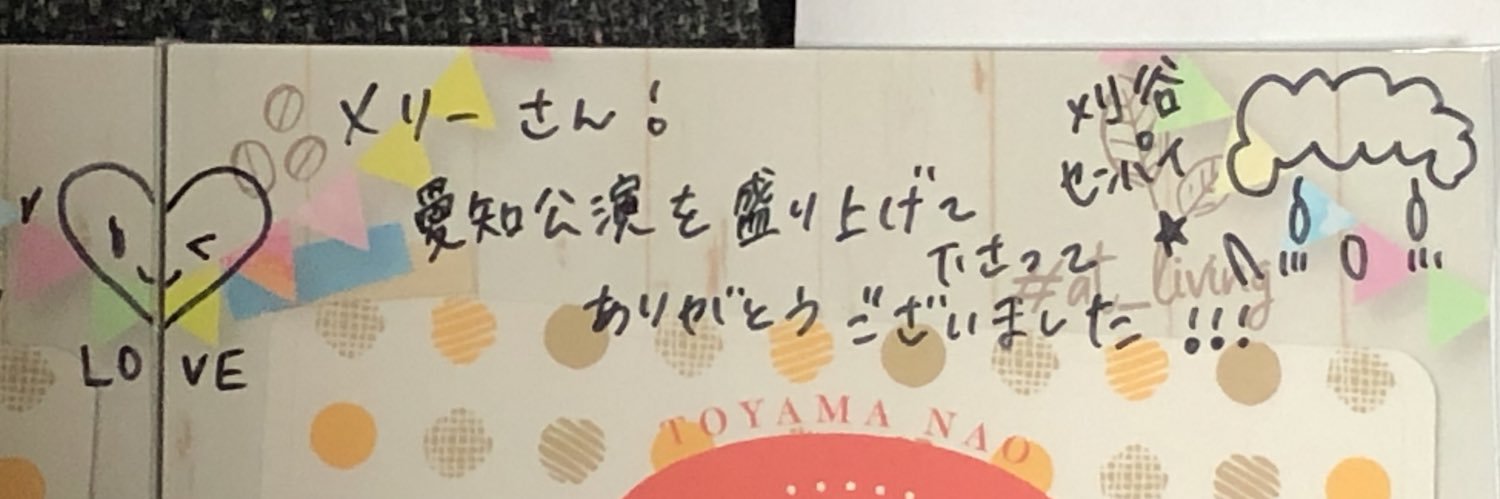 メリーさん!
愛知公演を盛り上げて
下さって
ありがとうございました!!!
刈谷
センパイ
LOVE
#at_living
TOYAMA NAO